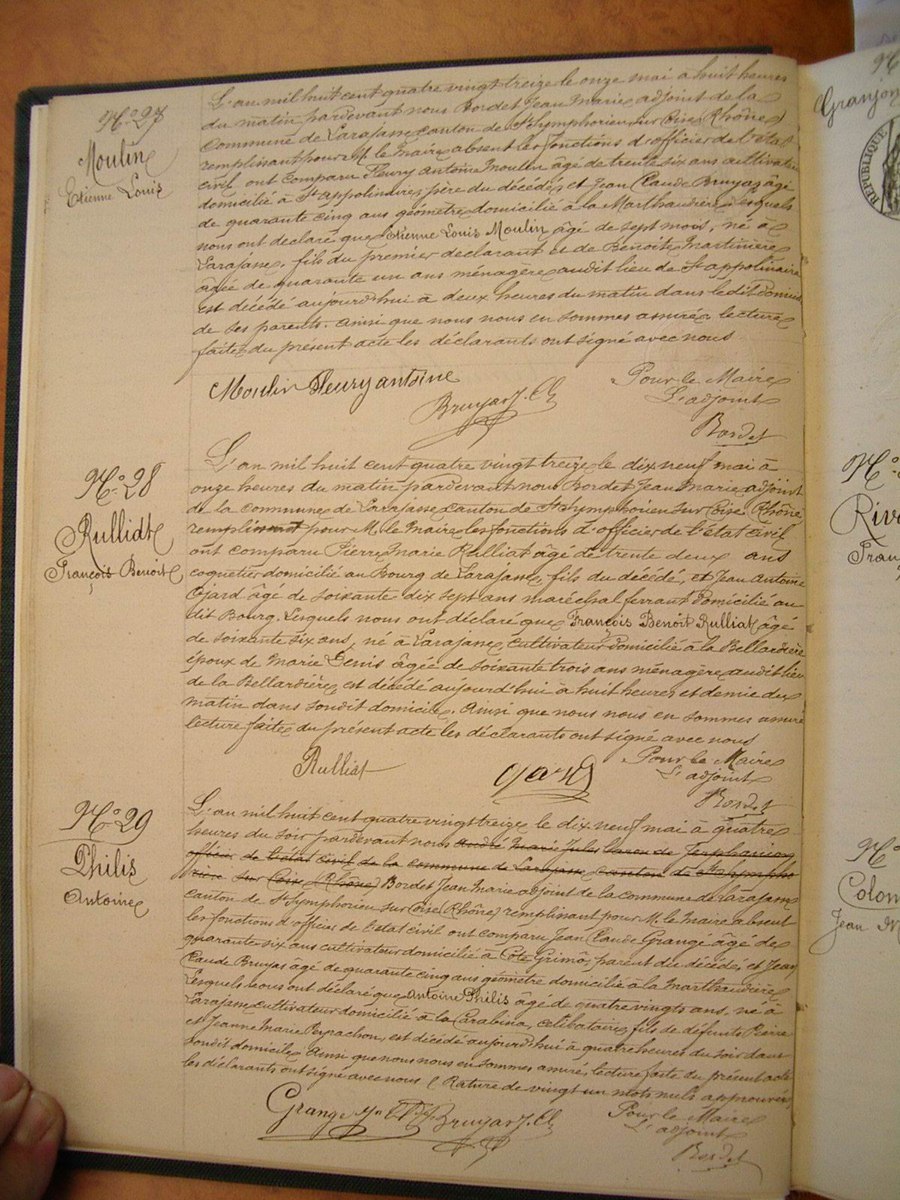 N° 27
Moulin
Etienne Louis
L'an mil huit cent quatre vingt treize le onze mai à huit heures
du matin pardevant nous Bordet Jean Marie adjoint de la
Commune de Larajasse canton de St Symphorien sur Coise (Rhône)
remplissant pour M. le Maire absent les fonctions d'officier de l'état
civil ont comparu Fleury Antoine Moulin âgé de trente six ans cultivateur
domicilié à St appolinaire, père du décédé, et Jean Claude Bruyas âgé
de quarante cinq ans géomètre domicilié à la Marthaudière, Lesquels
nous ont déclaré que Etienne Louis Moulin âgé de sept mois, né à
Larajasse, fils du premier déclarant et de Benoite Martinière
âgée de quarante un ans ménagère audit lieu de St appolinaire
est décédé aujourd'hui à deux heures du matin dans le dit domicile
de ses parents. Ainsi que nous nous en sommes assuré, lecture
faite du présent acte les déclarants ont signé avec nous
Moulin Fleury antoine
Bruyas J. Cl
Pour le Maire
L'adjoint
Bordet
N° 28
Rulliat
François Benoit
L'an mil huit cent quatre vingt treize le dix neuf mai à
onze heures du matin pardevant nous Bordet Jean Marie adjoint
de la commune de Larajasse canton de St Symphorien sur Coise (Rhône)
remplissant pour M. le Maire les fonctions d'officier de l'état civil
ont comparu Pierre Marie Rulliat âgé de trente deux ans
coquetier domicilié au Bourg de Larajasse, fils du décédé, et Jean Antoine
Ojard âgé de soixante dix sept ans maréchal ferrant domicilié au
dit Bourg. Lesquels nous ont déclaré que François Benoit Rulliat âgé
de soixante six ans, né à Larajasse, cultivateur domicilié à la Bellardière
époux de Marie Denis âgée de soixante trois ans ménagère audit lieu
de la Bellardière, est décédé aujourd'hui à huit heures et demie du
matin dans son dit domicile. Ainsi que nous nous en sommes assuré
lecture faite du présent acte les déclarants ont signé avec nous
Rulliat
Ojard
Pour le Maire
L'adjoint
Bordet
N° 29
Philis
Antoine
L'an mil huit cent quatre vingt treize le dix neuf mai à quatre
heures du soir pardevant nous André Marie Jules baron de Jerphanion
officier de l'état civil de la commune de Larajasse canton de St Sympho
rien sur Coise (Rhône) Bordet Jean Marie adjoint de la commune de Larajasse
canton de St Symphorien sur Coise (Rhône) remplissant pour M. le Maire absent
les fonctions d'officier de l'état civil ont comparu Jean Claude Grange âgé de
quarante six ans cultivateur domicilié à Côte Grimô, parent du décédé, et Jean
Claude Bruyas âgé de quarante cinq ans géomètre domicilié à la Marthaudière
Lesquels nous ont déclaré que Antoine Philis âgé de quatre vingts ans, né à
Larajasse cultivateur domicilié à la Carabina, célibataire, fils de défunts Pierre
et Jeanne Marie Peyrachon, est décédé aujourd'hui à quatre heures du soir dans
son dit domicile. Ainsi que nous nous en sommes assuré, lecture faite du présent acte
les déclarants ont signé avec nous (Rature de vingt un mots nuls approuvée)
Grange
Bruyas J. Cl
Pour le Maire
L'adjoint
Bordet
Granjon
REPUBLIQUE
N°
Riv
Fran
N°
Colom
Jean